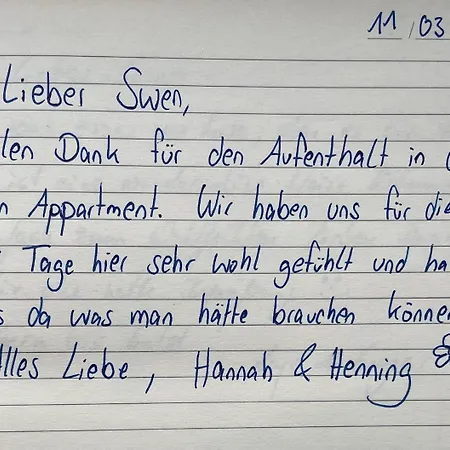 11/03
Lieber Swen,
len Dank für den Aufenthalt in
n Appartment. Wir haben uns für die
Tage hier sehr wohl gefühlt und ha
s da was man hätte brauchen könne
lles Liebe, Hannah & Henning